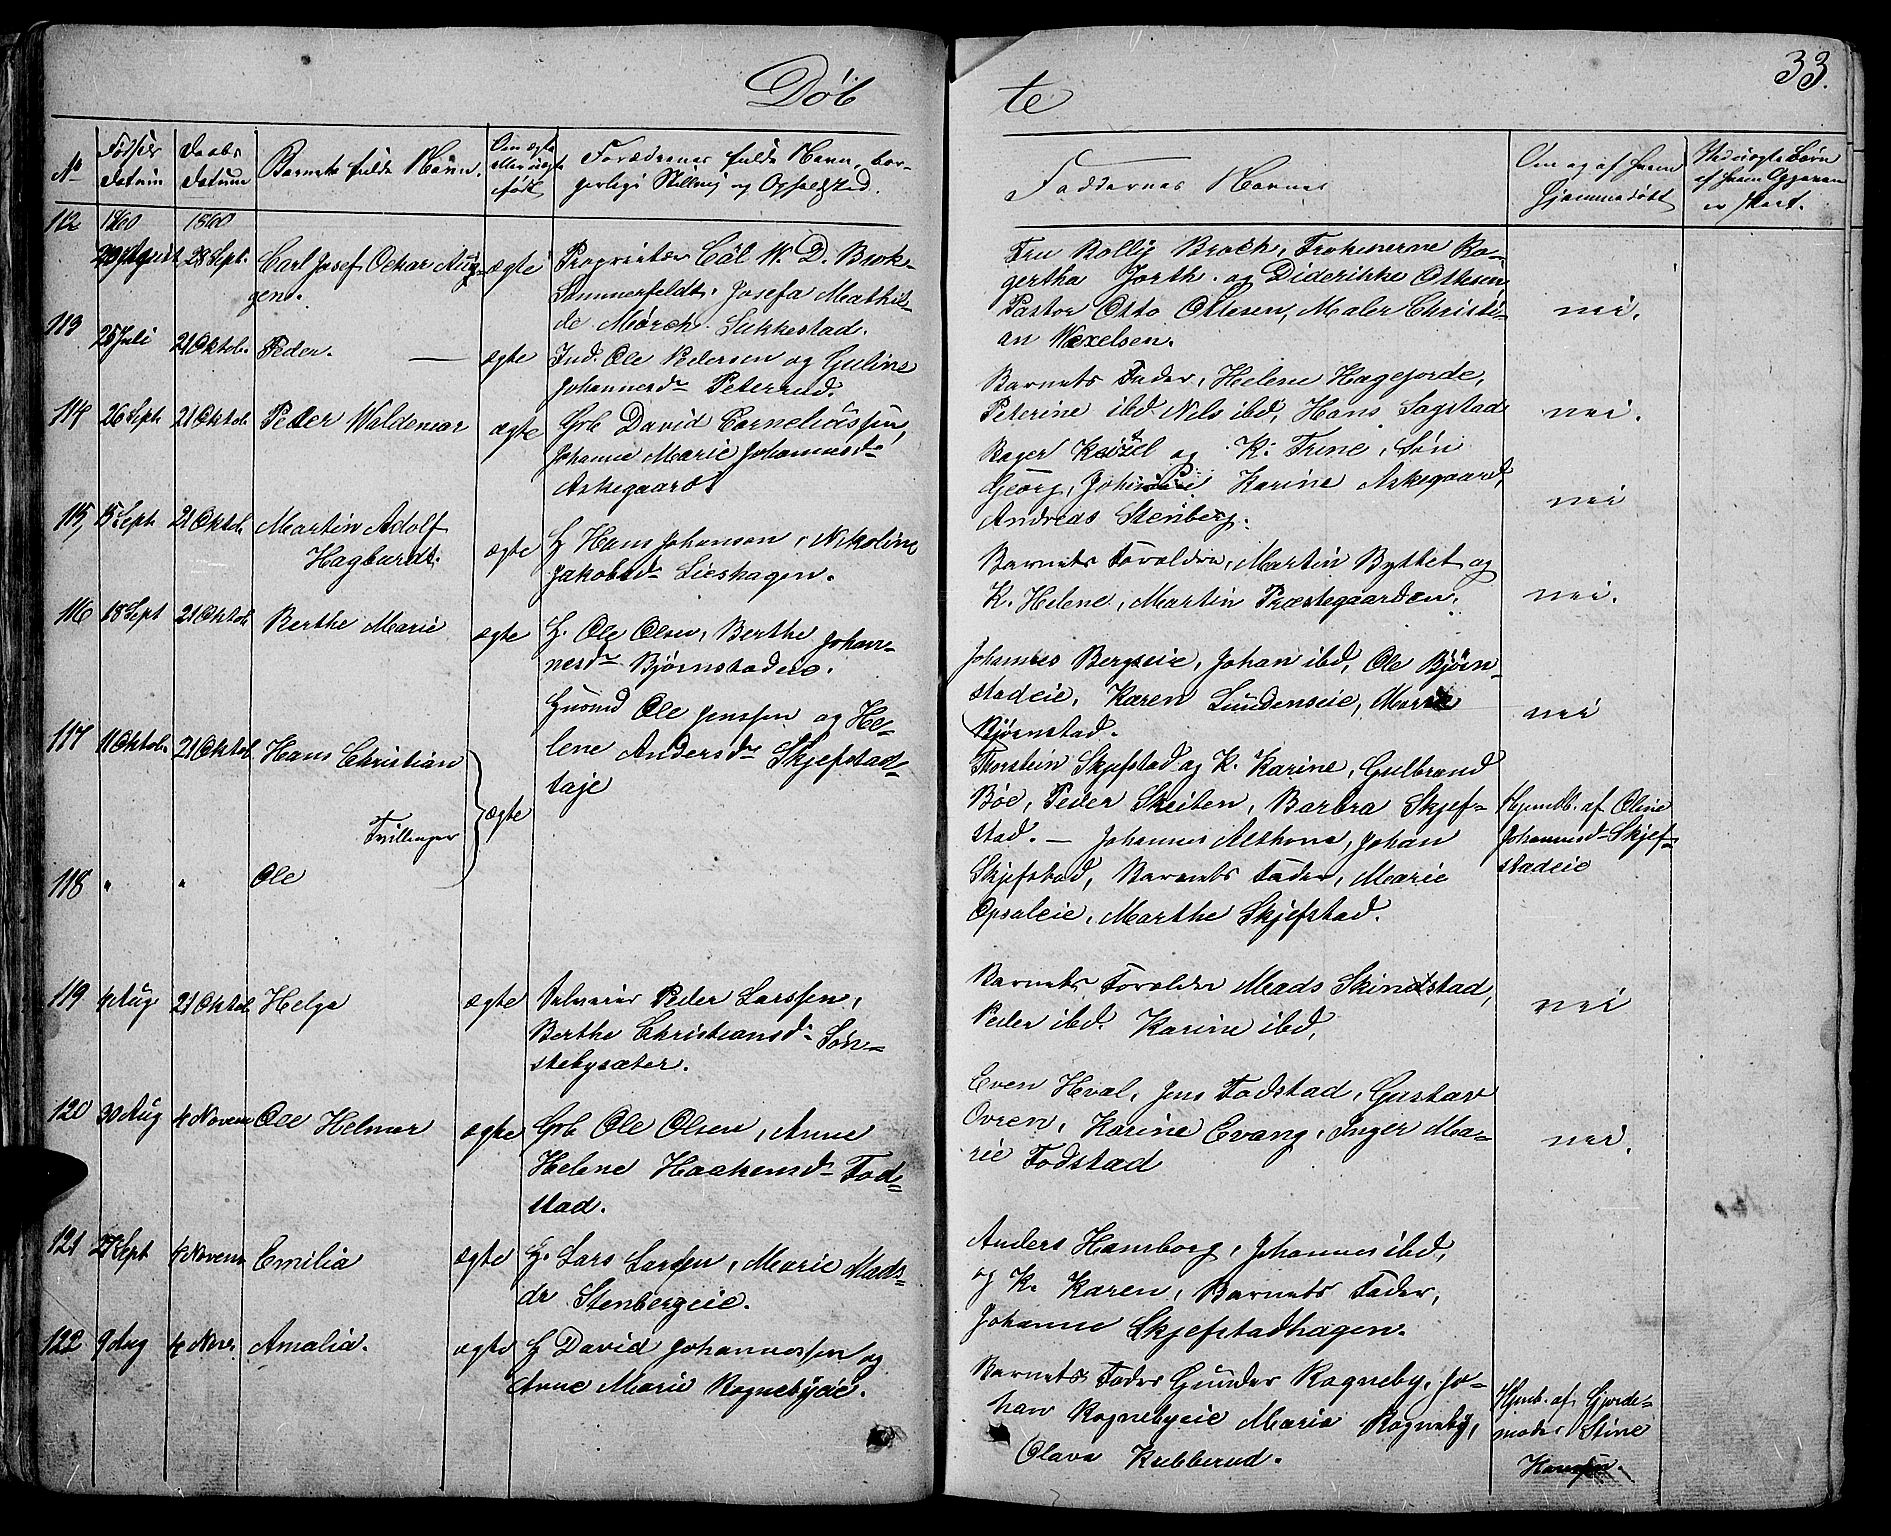 Döb
te
33.
No
Fødsels
datum
Daabs
datum
Barnets fulde Navn.
Om ægte
eller uægte
født
Forældrenes fulde Navn, bor-
gerlige Stilling og Opholdsted.
Faddernes Navne
Om og af hvem
hjemmedøbt
Ved uægte Børn
af hvem Opgaven
er skeet.
112
1860
1860
28 Sept.
Carl Josef Oskar Auj-
gen.
ægte
Proprietær Carl W. D. Brok-
Sommerfeldt, Josefa Mathil-
de Mørch Sukkestad.
Fru Bolly Broch, Frøknerne Ra-
gertha Jorth. og Diderikke Ottesen
Pastor Otto Ottesen, Maler Christi-
an Wexelsen.
nei.
113
25 Juli
21 Oktob.
Peder.
ægte
Ind. Ole Pedersen og Guline
Johannesdr Peterrud.
Barnets Fader, Helene Hagejorde,
Peterine ibd, Nils ibd, Hans Sogstad
nei.
114
26 Sept.
21 Oktob
Peder Waldemar
ægte
Grb David Corneliussen,
Johanne Marie Johannesdr
Askegaard
Bager og K: Trine, Søn
Georg, Karine Askegaard,
Andreas Stenberg.
nei
115,
15 Sept.
21 Oktob.
Martin Adolf
Hagbardt.
ægte
H Hans Johansen, Nikoline
Jakobsdr Lieshagen.
Barnets Forældre, Martin Byttet og
K. Helene, Martin Præstegaarden.
nei.
116
18 Sept
21 Oktob
Berthe Marie
ægte
H. Ole Olsen, Berthe Johan-
nesdr Bjørnstadeie.
Johannes Bergseie, Johan ibd, Ole Bjørn-
stadeie, Karen Lundenseie, Marie
Bjørnstad.
nei
117
11 Oktob.
21 Oktob.
Hans Christian
Tvillinger
ægte
Husmd Ole Jenssen og He-
lene Andersdr Skjefstad-
taje
Thorstein Skjefstad og K. Karine, Gulbrand
Böe, Peder Skeiten, Barbra Skjef-
stad. — Johannes Alhone, Johan
Skjefstad, Barnets Fader, Marie
Opsaleie, Marthe Skjefstad.
Hjemdb. af Oline
Johannesdr Skjef-
stadeie
118
"
"
Ole
119
4 Aug
21 Oktob.
Helga
ægte
Peder Larssen,
Berthe Christiansdr Søn-
stebysæter.
Barnets Forældre Mads Skindstad,
Peder ibd. Karine ibd,
nei
120
30 Aug
4 Novem
Ole Helmer
ægte
Grb Ole Olsen, Anne
Helene Haakensdr Fod-
stad.
Even Hval, Jens Fodstad, Gustav
Ovren, Karine Evang, Inger Ma-
rie Fodstad
nei.
121
27 Sept
4 Novem
Emilia
ægte
H. Lars Larsen, Marie Mads-
dr Stenbergeie.
Anders Hamborg, Johannes ibd,
og K. Karen, Barnets Fader,
Johanne Skjefstadhagen.
122
9 Aug
4 Nov.
Amalia.
ægte
H David Johannessen og
Anne Marie Rognebyeie.
Barnets Fader Gunder Rogneby, Jo-
han Rognebyeie Maria Rogneby,
Olava Kubberud.
Hjmb. af Gjorde-
moder Stine
Hansen.